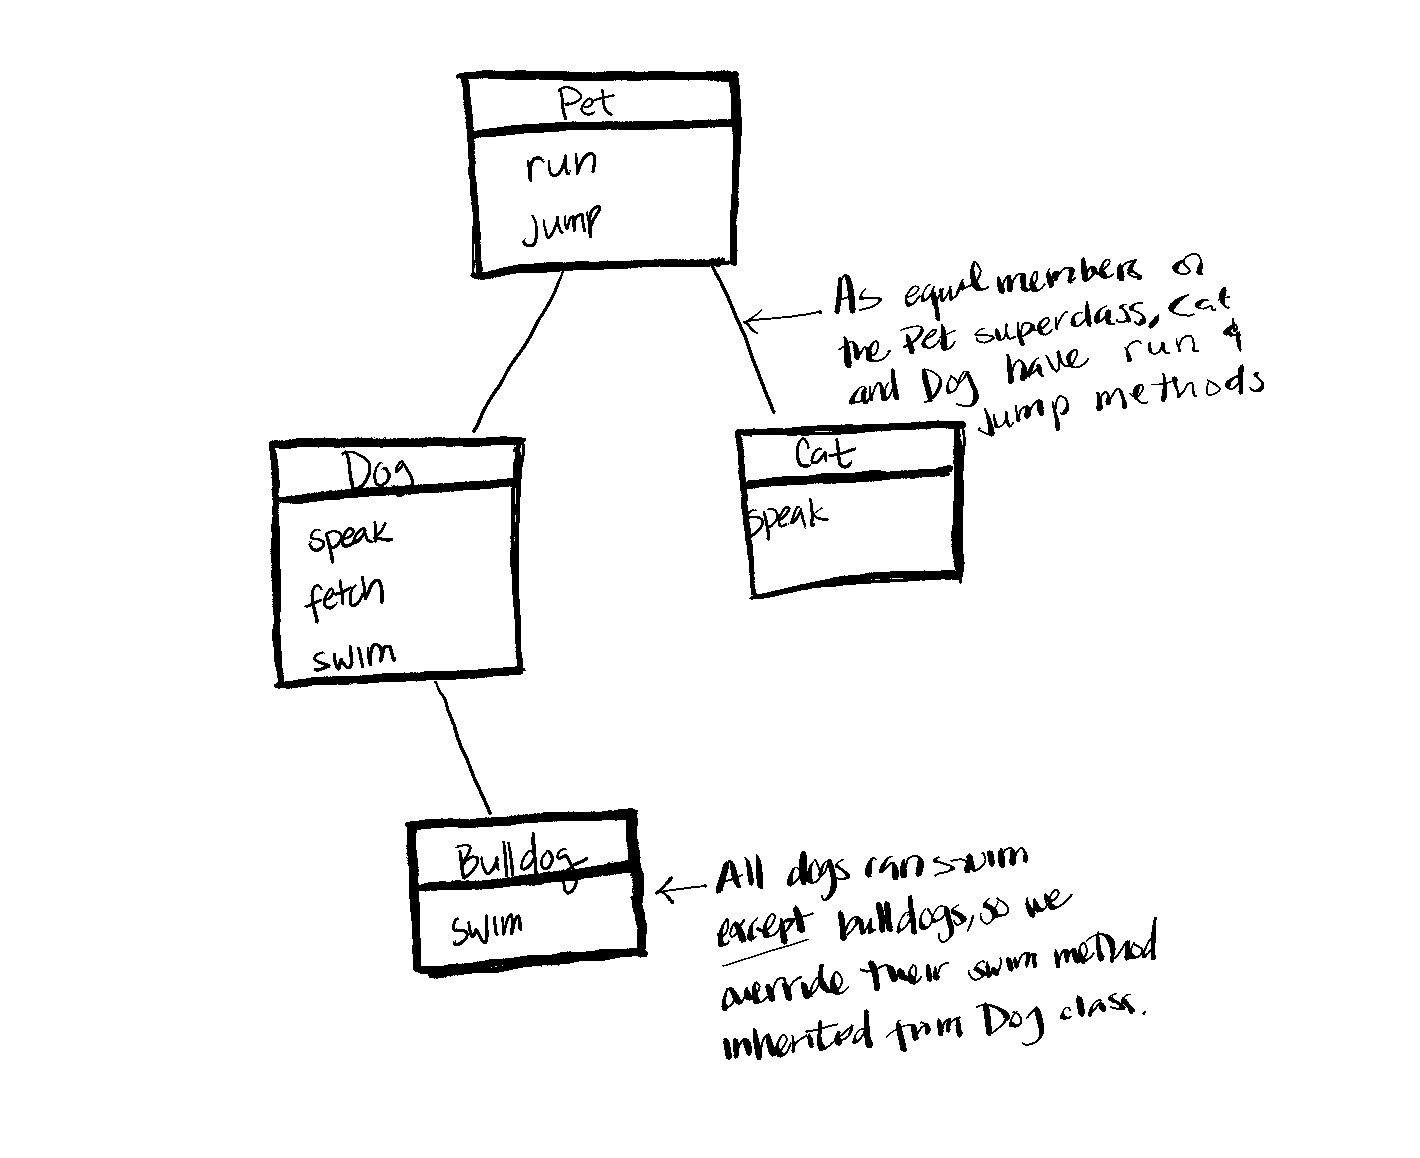 Pet
run
jump
As equal members of
the Pet superclass, Cat
and Dog have run &
jump methods
Dog
speak
fetch
swim
Cat
speak
Bulldog
swim
All dogs can swim
except bulldogs, so we
override their swim method
inherited from Dog class.